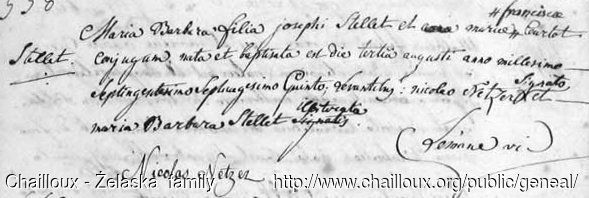 # franciscæ
Maria Barbera filia josephi Stellet et mariæ # Courlot
Stellet. conjugum nata et baptisata est die tertiâ augusti anno millesimo
Septingentesimo Septuagesimo Quinto, Levantibus: nicolao Netzer Signato et
maria Barbera Stellet illitterata
Nicolas Netzer
Chailloux - Żelaska family http://www.chailloux.org/public/geneal/